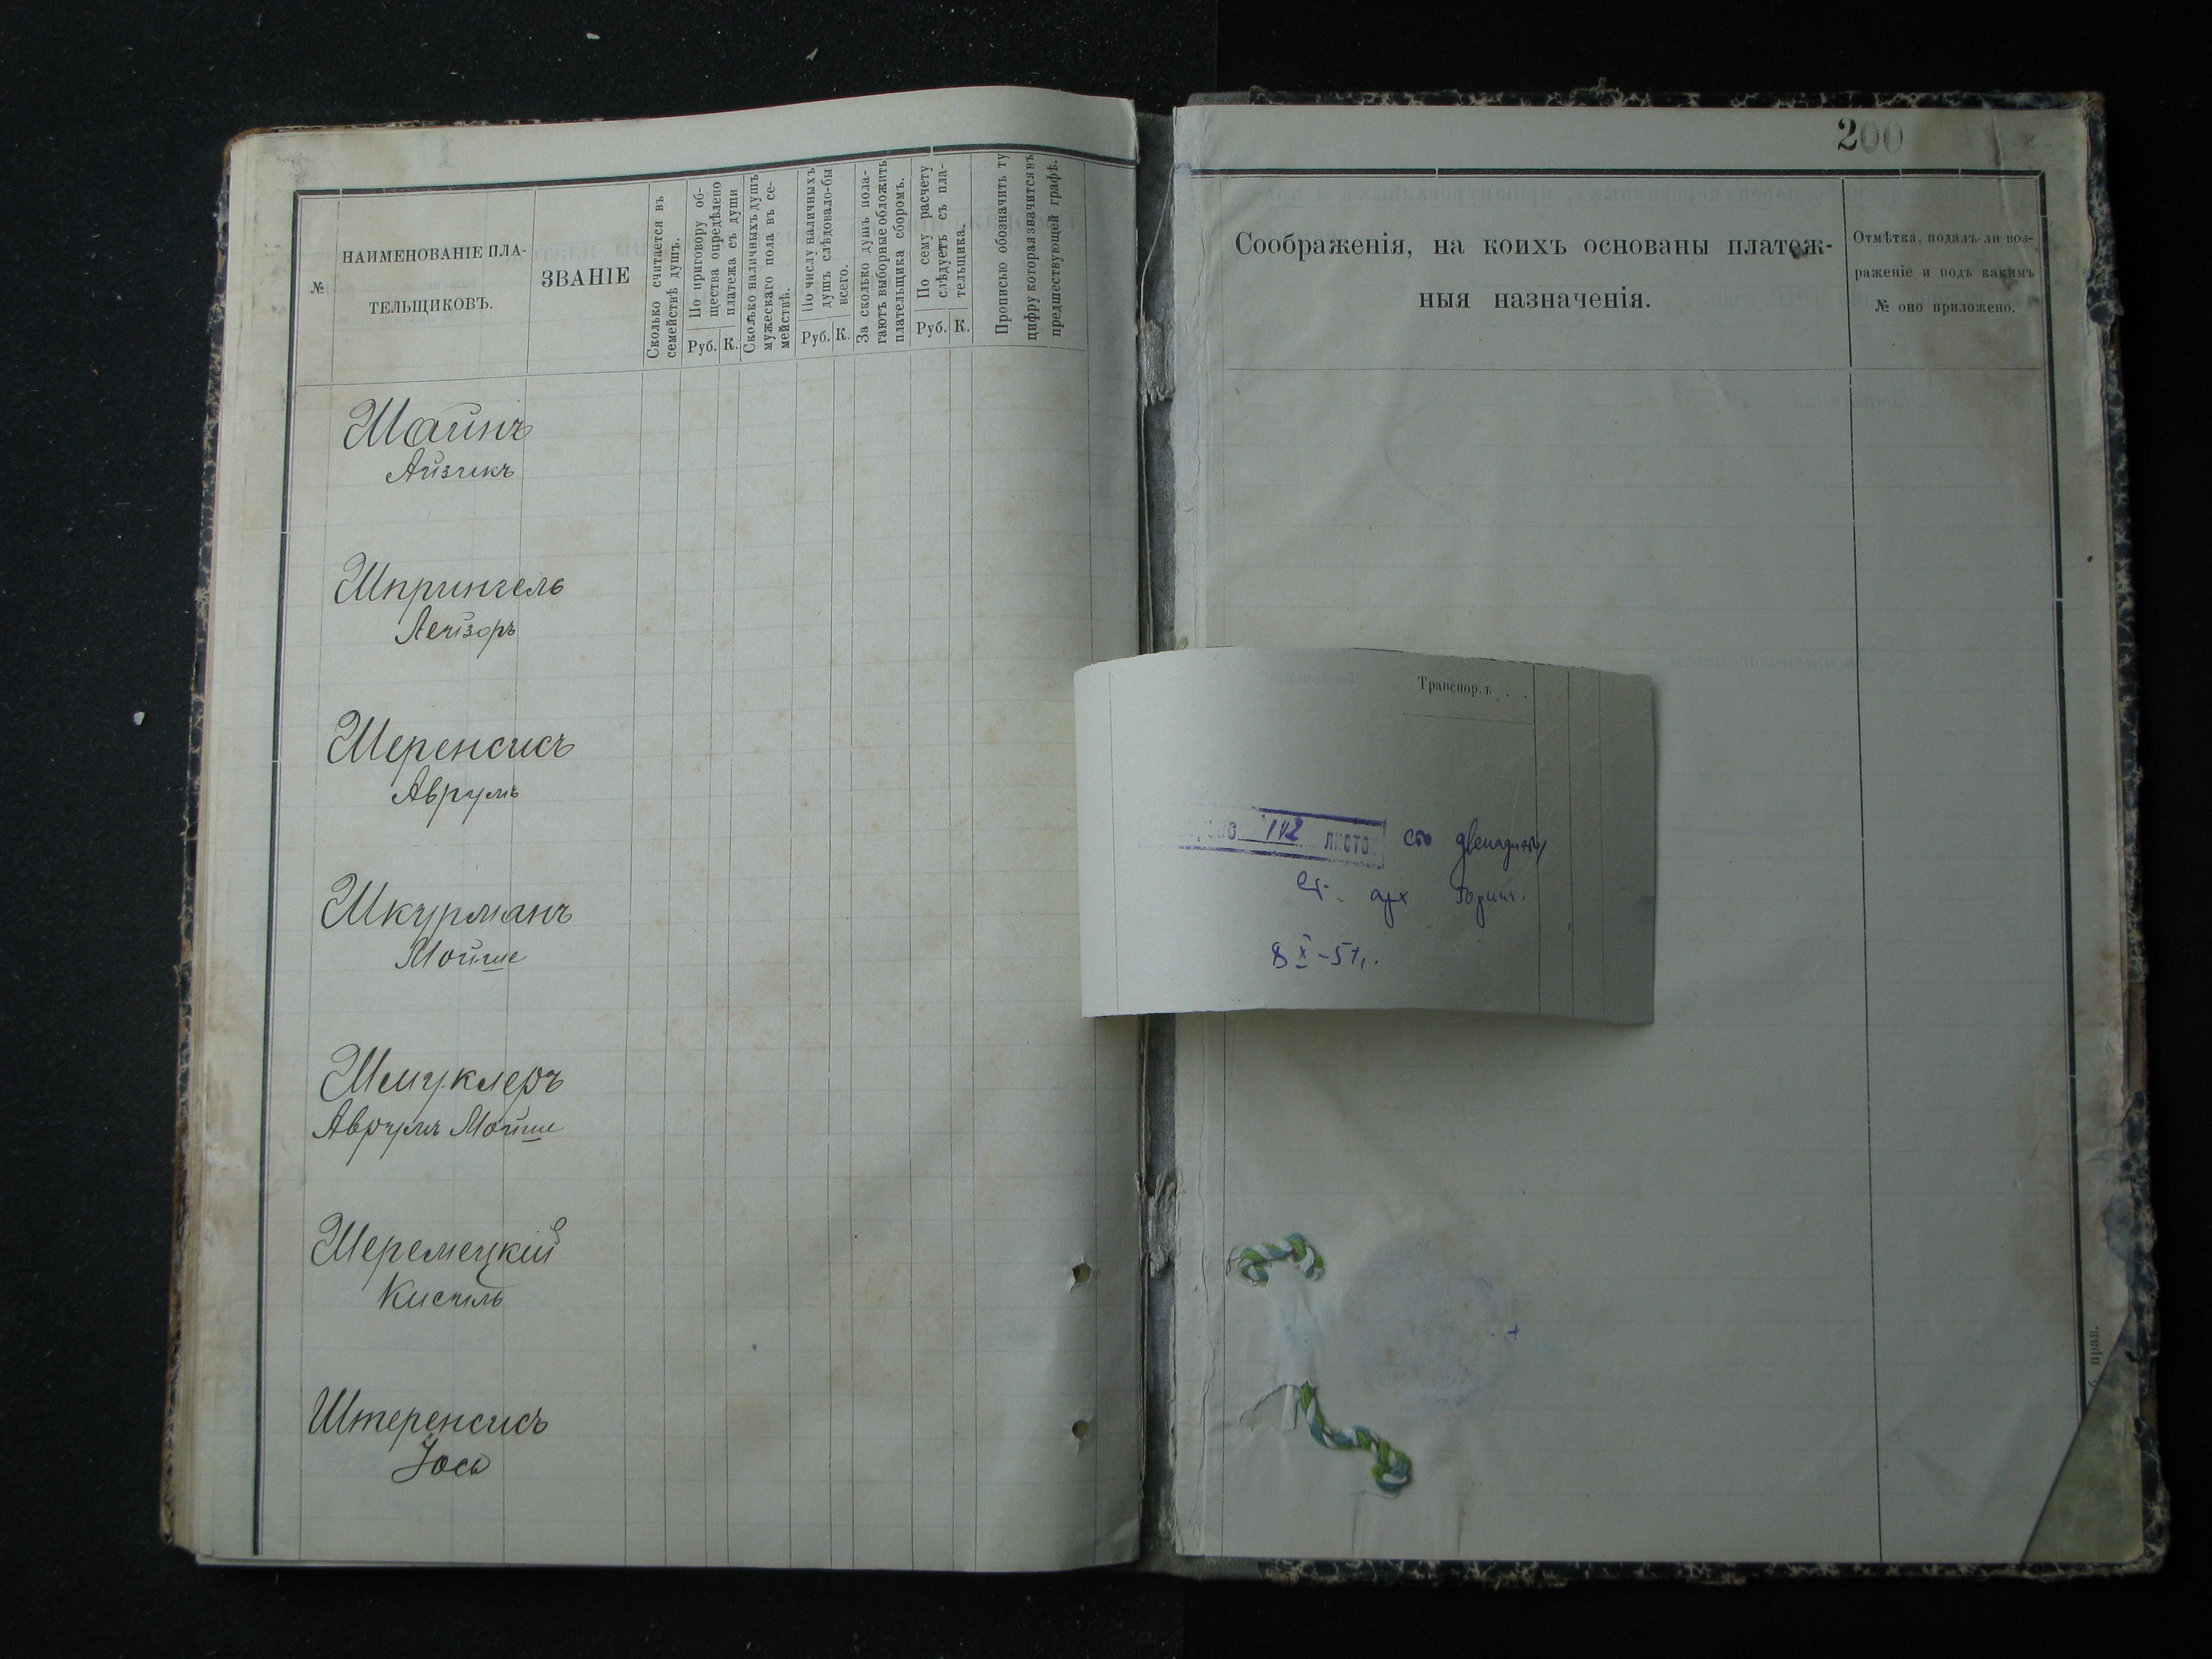 №
НАИМЕНОВАНІЕ ПЛА-
ТЕЛЬЩИКОВЪ.
ЗВАНІЕ
Сколько считается въ
семействѣ душъ.
По приговору об-
щества опредѣлено
платежа съ души
Руб.
К.
Сколько наличныхъ душъ
мужескаго пола въ се-
мействѣ.
По числу наличныхъ
душъ слѣдовало-бы
всего.
Руб.
К.
За сколько душъ пола-
гаютъ выборные обложить
плательщика сборомъ.
По сему расчету
слѣдуетъ съ пла-
тельщика.
Руб.
К.
Прописью обозначить ту
цифру которая значится въ
предшествующей графѣ.
Шаинъ
Айзикъ
Шпрингель
Лейзоръ
Шеренсисъ
Аврумъ
Шкурманъ
Мойше
Шмуклеръ
Аврумъ Мойше
Шеремецкій
Кисиль
Штеренсисъ
Йось
200
Соображенія, на коихъ основаны платеж-
ныя назначенія.
Отмѣтка, подалъ-ли воз-
раженіе и подъ какимъ
№ оно приложено.
Транспортъ . .
112 листов сто двенадцать
Ст. арх
8 X-51 г.
прав.